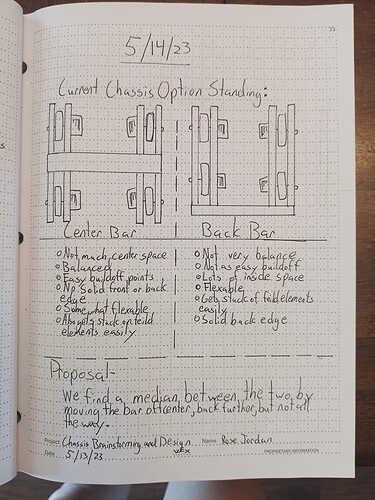 5/14/23
Current Chassis Option Standing:
Center Bar
Back Bar
o Not much center space
o Balanced
o Easy buildoff points
o No solid front or back
edge
o Some what flexible
stuck on
elements easily
o Not very balance
o Not as easy buildoff
o Lots of inside space
o Flexible
o Gets stuck of elements
easily
o Solid back edge
Proposal-
We find a median between the two by
moving the bar ofcenter, back further, but not all
the way.
Project Chassis Brainstorming and Design
VEX
Name Rose Jordan
Date 5/13/23
PROPRIETARY INFORMATION